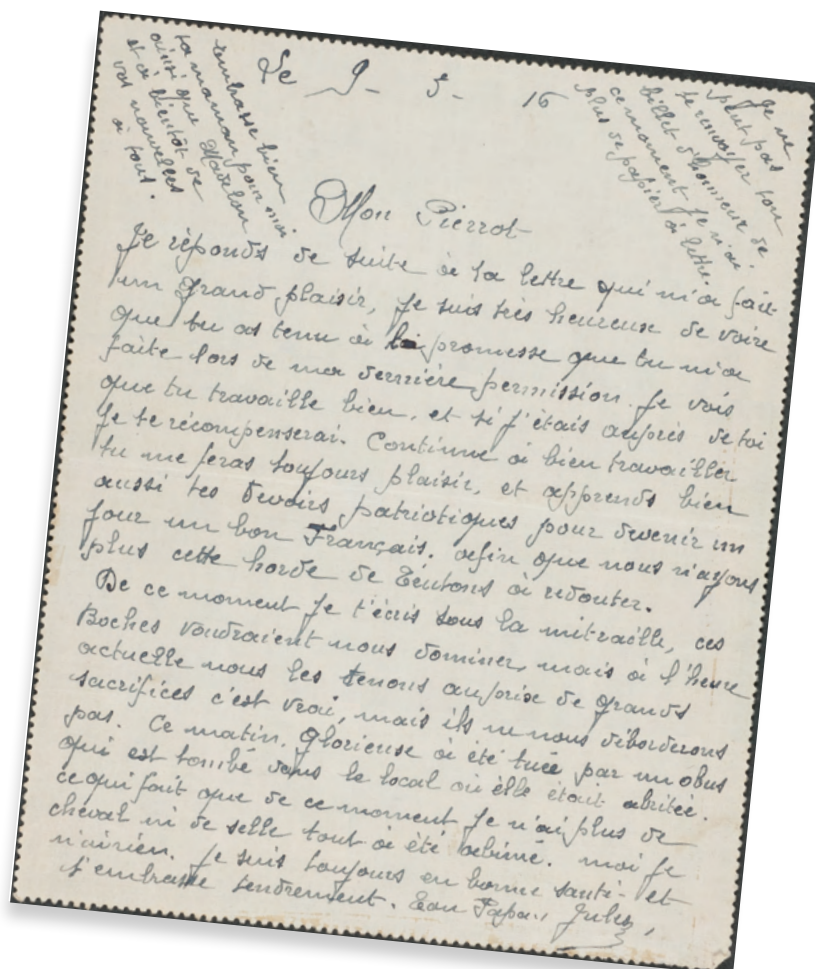 Le 9 - 5 - 16
Mon Pierrot
Je réponds de suite à ta lettre qui m'a fait
un grand plaisir, je suis très heureux de voire
que tu as tenu à la promesse que tu m'a
faite lors de ma dernière permission. Je vois
que tu travaille bien, et si j'étais auprès de toi
je te récompenserai. Continue à bien travailler
tu me feras toujours plaisir, et apprends bien
aussi tes devoirs patriotiques pour devenir un
jour un bon Français. afin que nous n'ayons
plus cette horde de Teutons à redouter.
De ce moment je t'écris sous la mitraille, ces
Boches voudraient nous dominer, mais à l'heure
actuelle nous les tenons au prix de grands
sacrifices c'est vrai, mais ils ne nous déborderons
pas. Ce matin, Glorieuse à été tuée par un obus
qui est tombé dans le local où elle était abritée.
ce qui fait que de ce moment je n'ai plus de
cheval ni de selle tout à été abimé. moi je
n'ai rien. je suis toujours en bonne santé et
t'embrasse tendrement. Ton Papa, Jules,
Je ne
peut pas
te renvoyer ton
billet d'honneur de
ce moment je n'ai
plus de papier à lettre.
embrasse bien
ta maman pour moi
ainsi que Madelon
et à bientôt de
vos nouvelles
à tous.